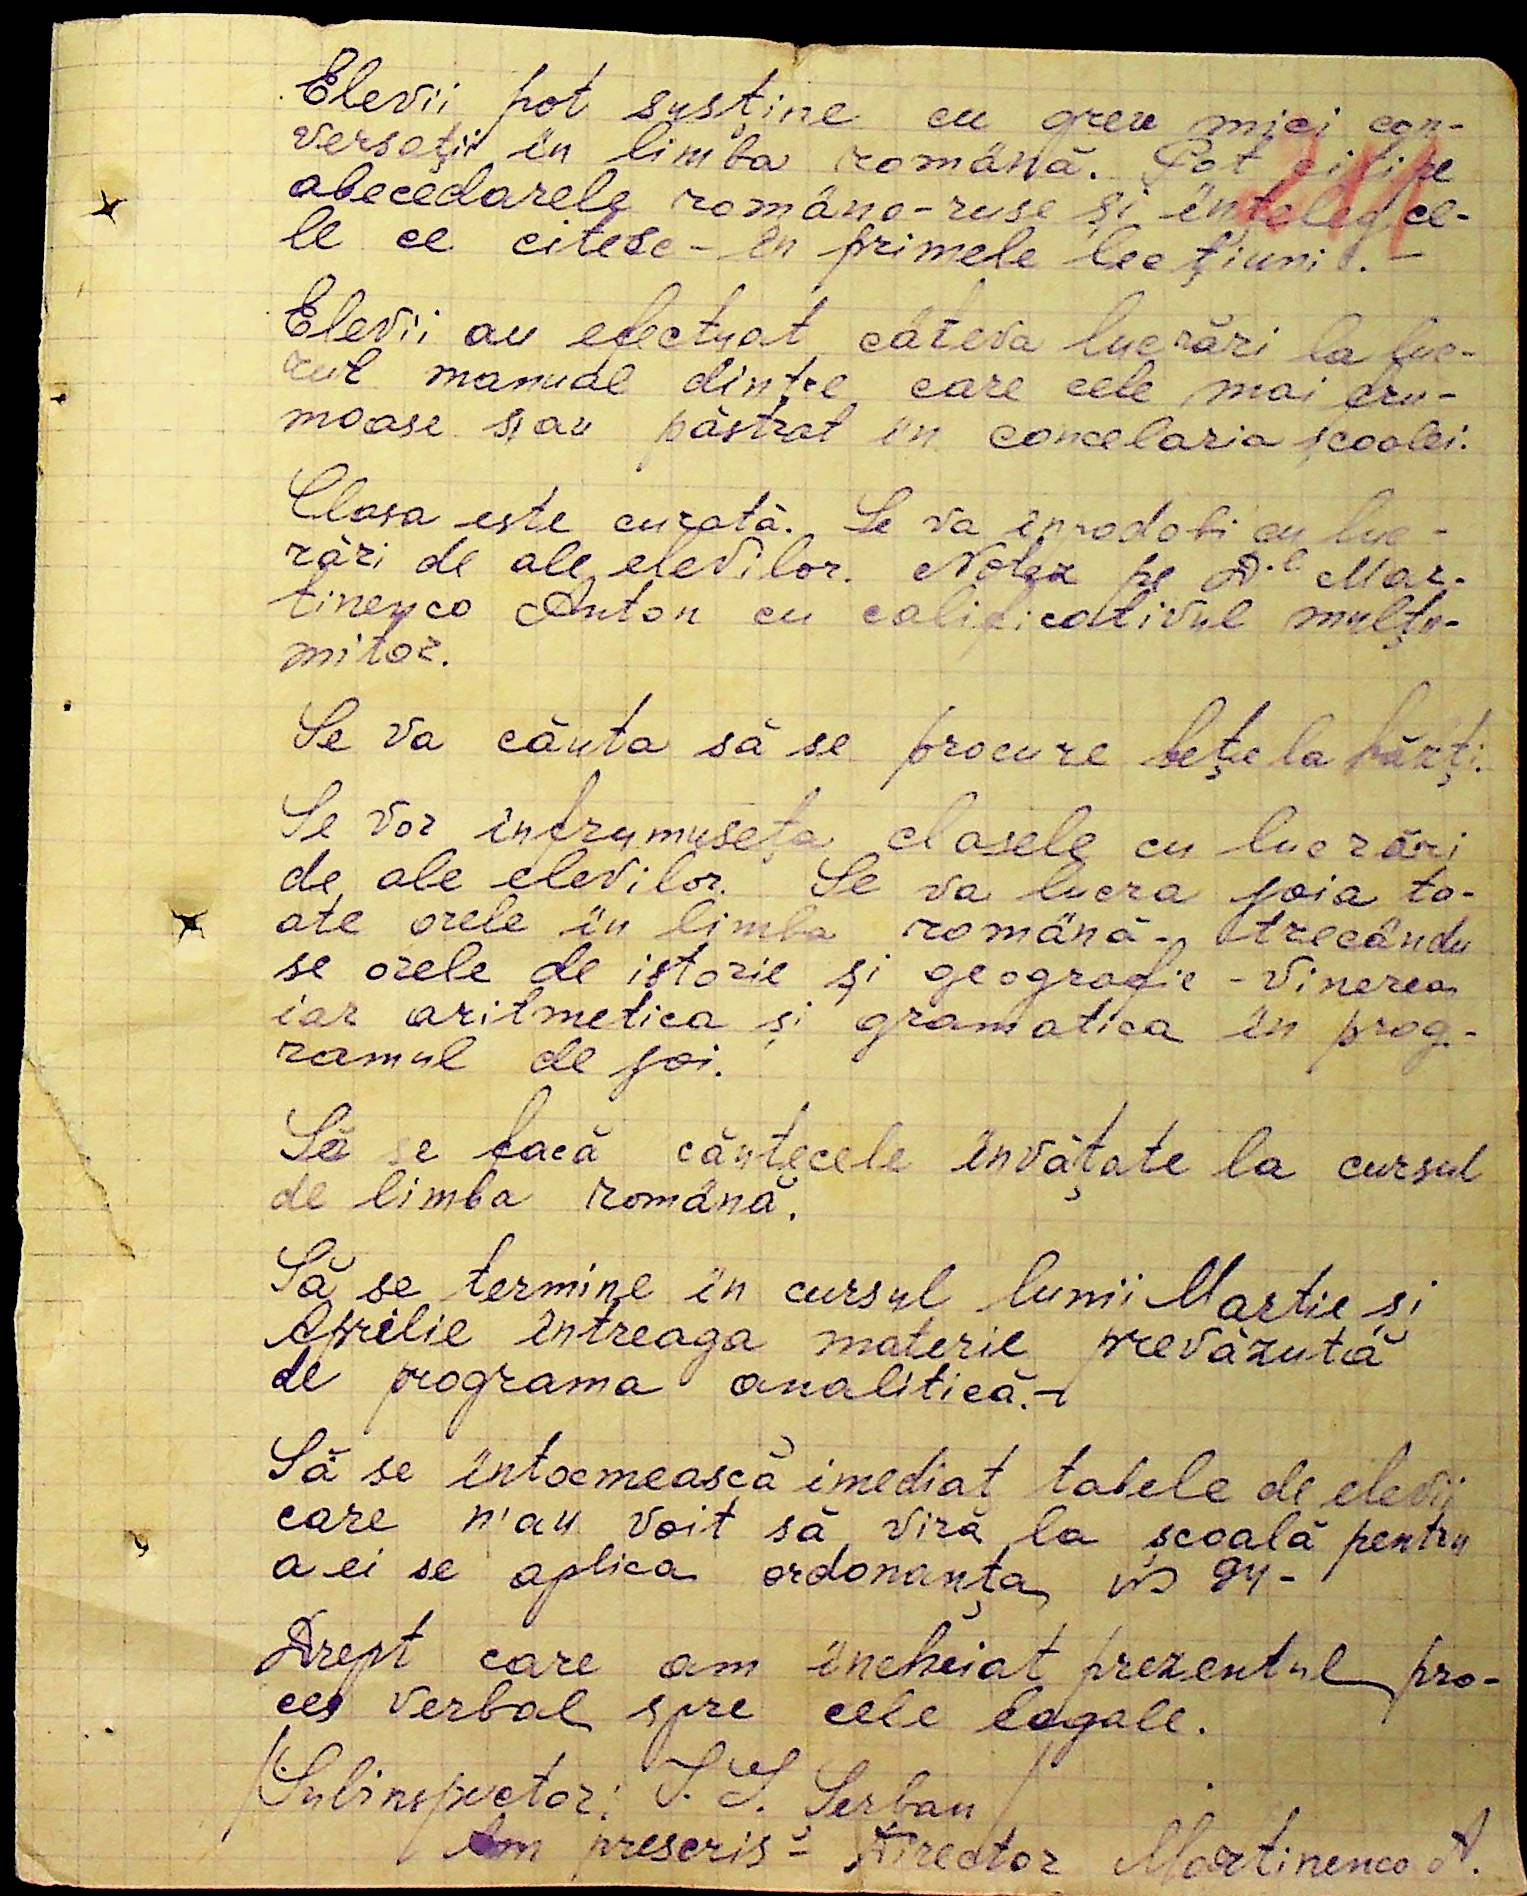 Elevii pot susține cu greu mici con-
versații în limba română. Pot citi pe
abecedarele româno-ruse și înțeleg ce-
le ce citesc - în primele lecțiuni. -
Elevii au efectuat câteva lucrări la luc-
rul manual dintre care cele mai fru-
moase s'au păstrat în concelaria școalei.
Clasa este curată. Se va înpodobi cu luc-
rări de ale elevilor. Notez pe D.l Mar-
tinenco Anton cu calificativul mulțu-
mitor.
Se va căuta să se procure bețe la hărți.
Se vor înfrumuseța clasele cu lucrări
de ale elevilor. Se va lucra joia to-
ate orele în limba română - trecându
se orele de istorie și geografie - Vinerea
iar aritmetica și gramatica în prog-
ramul de joi.
Să se facă cântecele învățate la cursul
de limba română.
Să se termine în cursul lunii Martie și
Aprilie întreaga materie prevăzută
de programa analitică. -
Să se întocmească imediat tabele de elevii
care n'au voit să vină la școală pentru
a ei se aplica ordonanța
Drept care am încheiat prezentul pro-
ces verbal spre cele legale.
/Subinspector: S. S. Șerban/
Am prescris - Director Martinenco A.